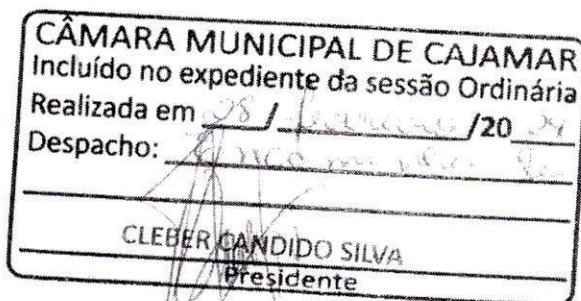 CÂMARA MUNICIPAL DE CAJAMAR
Incluído no expediente da sessão Ordinária
Realizada em 28 / fevereiro /20 24
Despacho:
CLEBER CANDIDO SILVA
Presidente